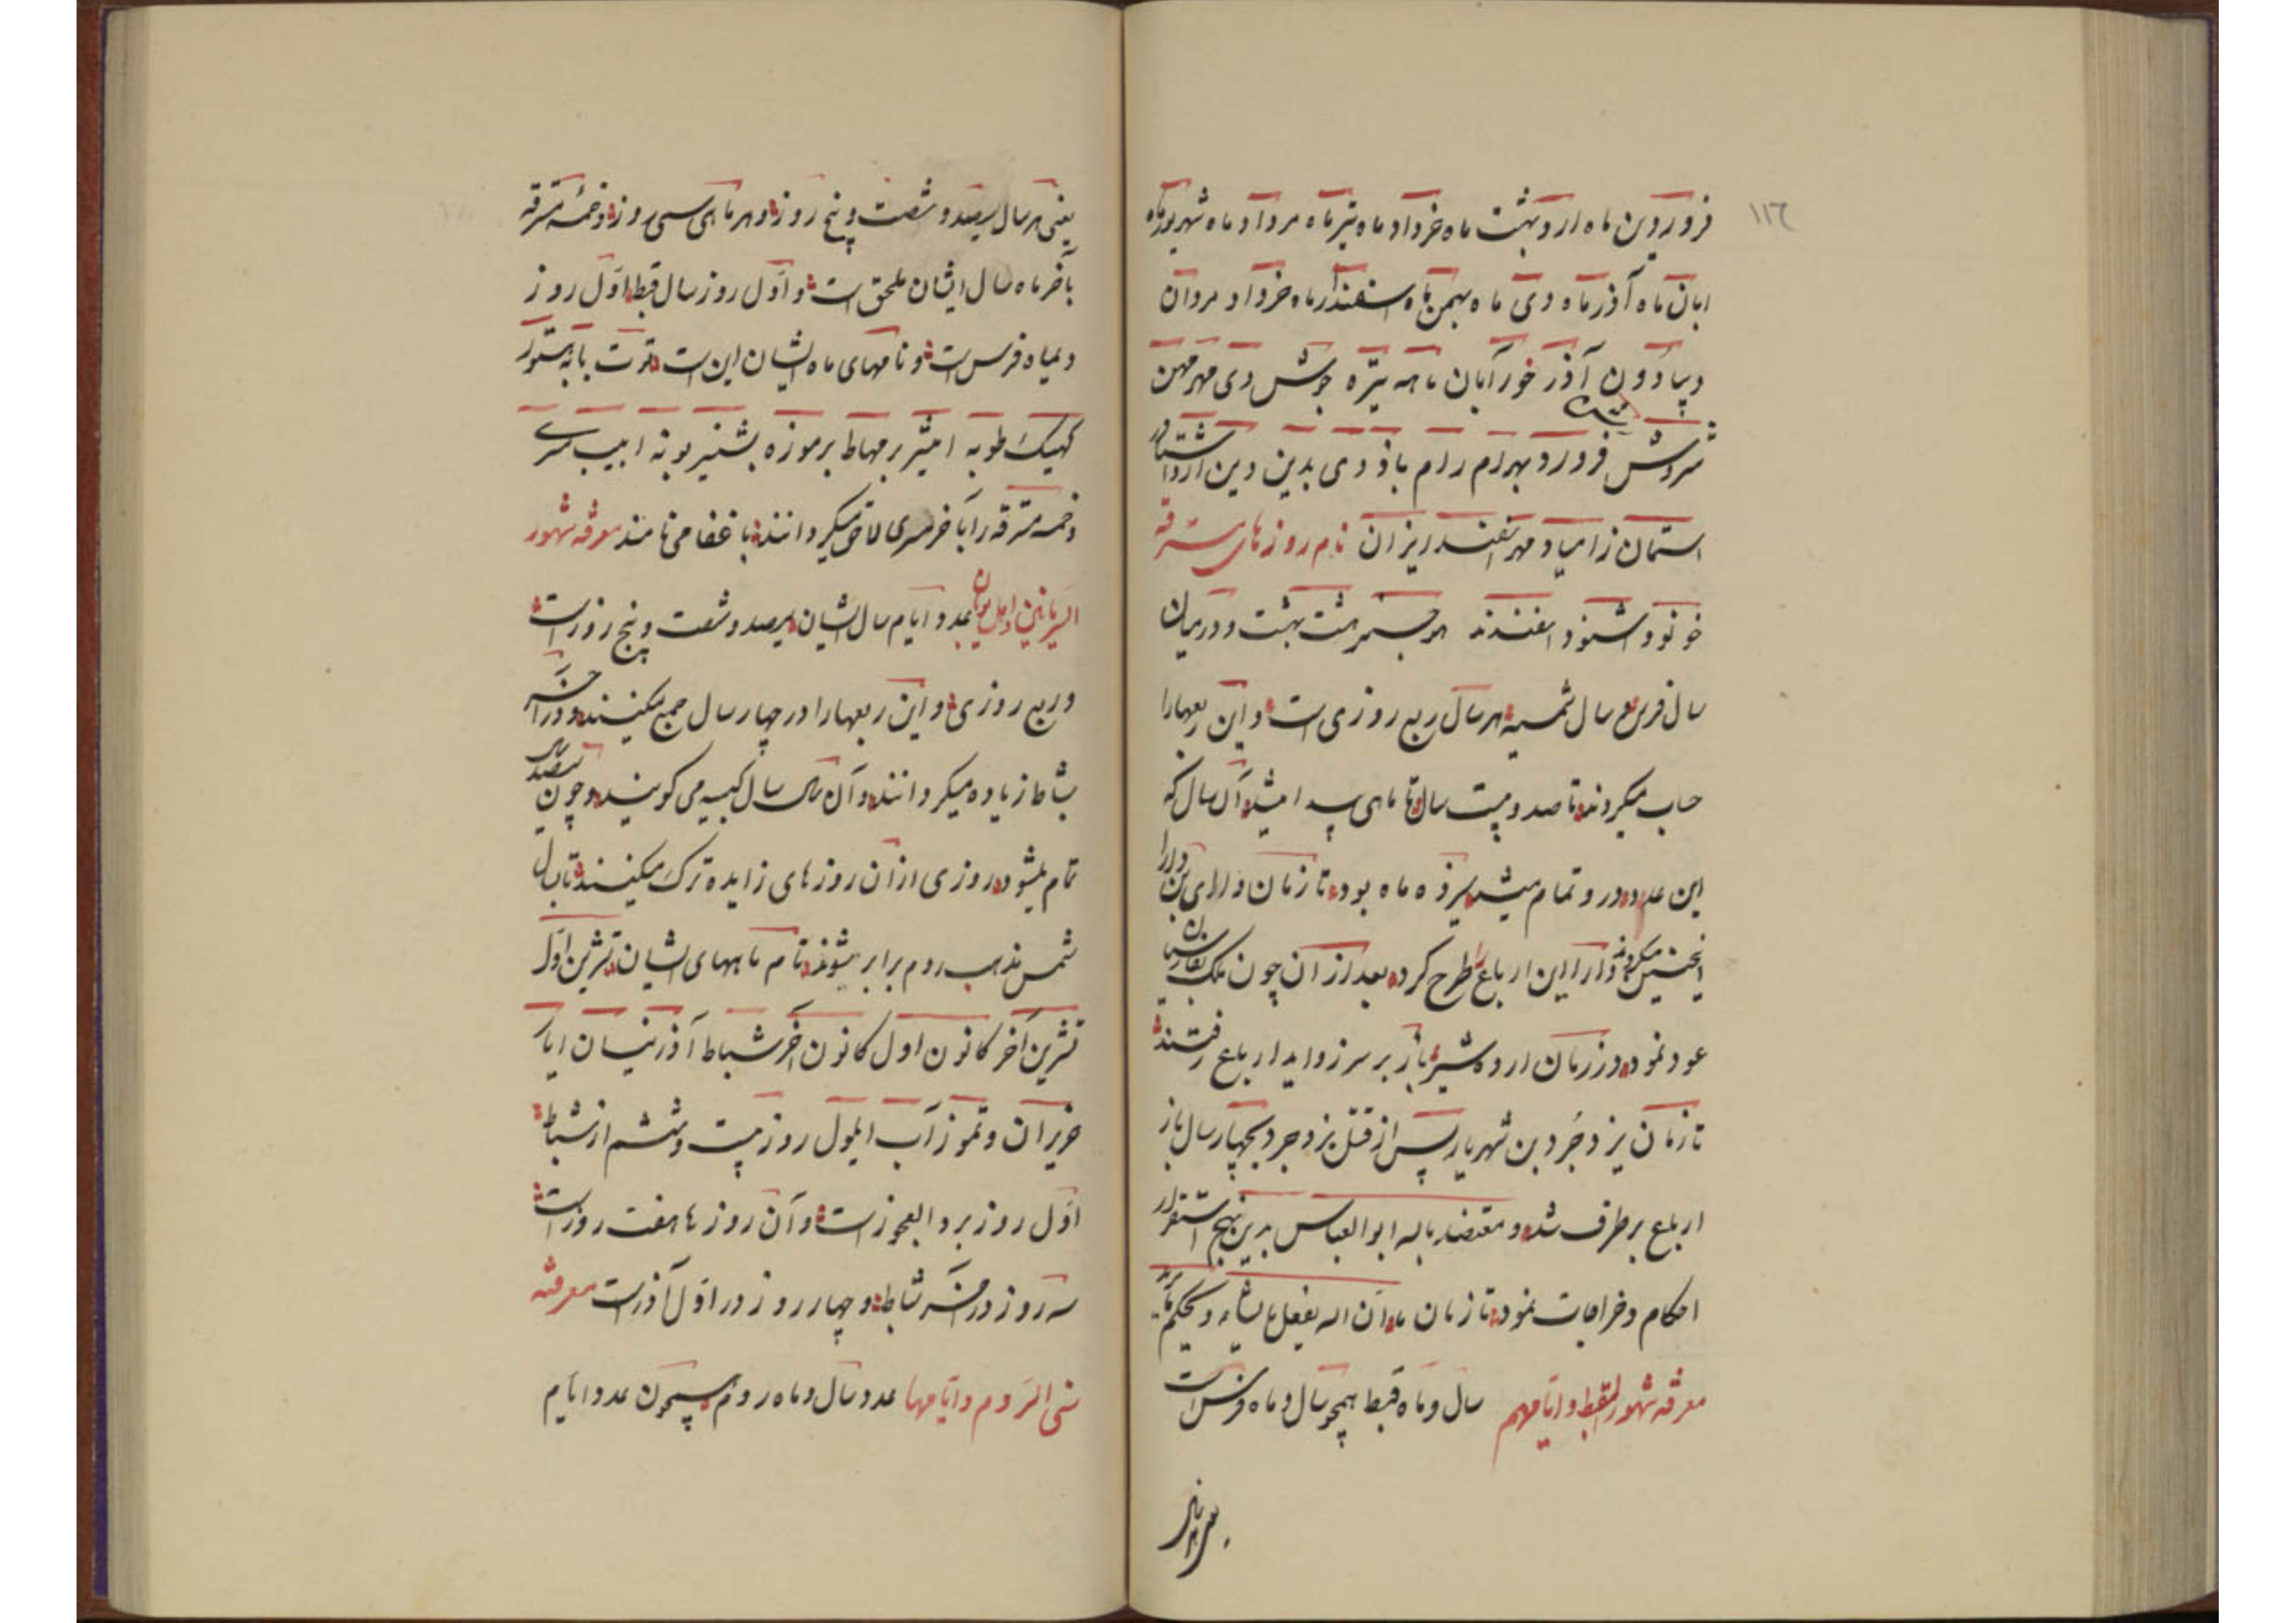 ١١٦
فروردین ماه اردوبهشت ماه خرداد ماه تیر ماه مرداد ماه شهریور ماه
ابان ماه آذر ماه دی ماه بهمن ماه اسفندار ماه خرداد مردان
آذر خور آبان ماهه تیره جوش دی مهر مهن
سروش فرورد بهرام رام باذ دی بدین دین ارد اشتاد
استمان زامیاد مهر اسفند ریزان نام روزهای مسترقه
هشت بهشت و در میان
سال فرس و سال شمسیه هر سال ربع روزی است و این ربعها را
حساب میکردند تا صد و بیست سال تا ماهی پیدا میشد آن سال که
این عدد درو تمام میشد سیزده ماه بود تا زمان دارای بن دارا
اینچنین میکردند و دارا این ارباع را طرح کرد بعد از آن چون ملک بفارسیان
عود نمود در زمان اردشیر باز بر سر زواید ارباع رفتند
تا زمان یزدجرد بن شهریار پس از قتل یزدجرد بچهار سال باز
ارباع برطرف شد و معتضد بالله ابو العباس بدین نهج استقرار
احکام و خراجات نمود تا زمان ما و ان الله یفعل ما یشاء و یحکم ما یرید
معرفه شهور القبط و ایامهم سال و ماه قبط همچو سال و ماه فرس است
یعنی هر سال
یعنی هر سال سیصد و شصت و پنج روز و هر ماهی سی روز و خمسه مسترقه
بآخر ماه سال ایشان ملحق است و اول روز سال قبط اول روز
دیماه فرس است و نامهای ماه ایشان این است توت بابه هتور
کهیک طوبه امشیر برمهاط برموزه بشنیر بونه ابیب مسری
و خمسه مسترقه را بآخر مسری لاحق میگردانند باغفا می نامند معرفه شهور
السریانیین و اهل یونان عدد ایام سال ایشان سیصد و شصت و پنج روز است
و ربع روزی و این ربعها را در چهار سال جمع میکنند و در آخر
شباط زیاده میگردانند و آن سال را سال کبیسه می گویند و چون سیصد سال
تمام میشود روزی از آن روزهای زایده ترک میکنند تا سال
شمس بمذهب روم برابر میشوند نام ماههای ایشان تشرین اول
تشرین آخر کانون اول کانون آخر شباط آذر نیسان ایار
حزیران و تموز آب ایلول روز بیست و ششم از شباط
اول روز برد العجوز است و آن روزها هفت روز است
سه روز در آخر شباط و چهار روز در اول آذر است معرفه
سنی الروم و ایامها عدد سال و ماه روم همچون عدد ایام